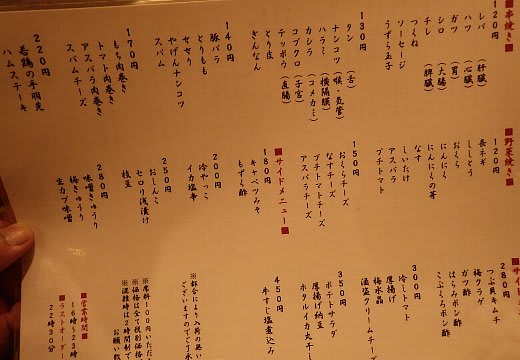 ■串焼き■
120円
レバ（肝臓）
ハツ（心臓）
ガツ（胃）
シロ（大腸）
チレ（脾臓）
つくね
ソーセージ
うずら玉子
130円
タン（舌）
ナンコツ（喉・気管）
ハラミ（横隔膜）
カシラ（コメカミ）
コブクロ（子宮）
テッポウ（直腸）
とり皮
ぎんなん
140円
豚バラ
とりもも
セセリ
やげんナンコツ
スパム
170円
もち肉巻き
トマト肉巻き
アスパラ肉巻き
スパムチーズ
220円
若鶏の手羽先
ハムステーキ
■野菜焼き■
120円
長ネギ
ししとう
おくら
にんにく
にんにくの芽
なす
しいたけ
アスパラ
プチトマト
150円
おくらチーズ
なすチーズ
プチトマトチーズ
アスパラチーズ
■サイドメニュー■
180円
キャベツみそ
もずく酢
200円
冷やっこ
イカ塩辛
250円
おしんこ
セロリ浅漬け
枝豆
280円
味噌きゅうり
梅きゅうり
生カブ味噌
■サイ
280
つぶ貝キムチ
梅クラゲ
ガツ酢
はらみポン酢
こぶくろポン酢
300円
冷しトマト
厚揚げ
梅水晶
酒盗クリームチーズ
350円
ポテトサラダ
厚揚げ納豆
ホタルイカ丸干
450円
牛すじ塩煮込み
※都合により入荷の無い
ございますのでご了承
※席料100円いただい
※価格は全て税別価格
※混雑時は2時間制で
お願い致
■営業時間■
16時～23時
■ラストオーダー
22時30分